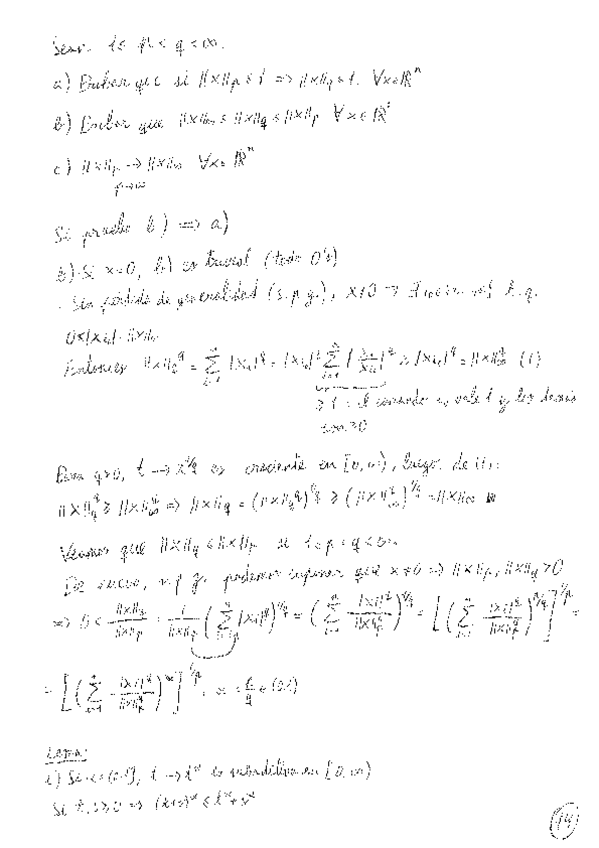 Sean 1≤ p < q < ∞.
a) Probar que si ||x||p ≤ 1 => ||x||q ≤ 1. ∀x∈ℝⁿ
b) Probar que ||x||∞ ≤ ||x||q ≤ ||x||p ∀x∈ℝⁿ
c) ||x||p → ||x||∞ ∀x∈ℝⁿ
p→∞
Si pruebo b) => a)
b) Si x=0, b) es trivial (todo 0's)
· Sin pérdida de generalidad (s.p.g.), x≠0 t.q.
0<|xi₀| = ||x||∞
Entonces ||x||q^q = Σ |xi|^q = |xi₀|^q Σ |xi/xi₀|^q ≥ |xi₀|^q = ||x||∞^q (1)
≥ 1 vale 1 y los demás
son ≥0
Para q>0, t → t^(1/q) es creciente en [0,∞), luego de (1):
||x||q^q ≥ ||x||∞^q => ||x||q = (||x||q^q)^(1/q) ≥ (||x||∞^q)^(1/q) = ||x||∞ ■
Veamos que ||x||q ≤ ||x||p si 1≤p<q<∞.
De nuevo, s.p.g. podemos suponer que x≠0 => ||x||p, ||x||q >0
=> 0 < ||x||q/||x||p = 1/||x||p (Σ |xi|^q)^(1/q) = (Σ |xi|^q/||x||p^q)^(1/q) = [(Σ |xi|^q/||x||p^q)^(p/q)]^(1/p) =
= [(Σ |xi|^q/||x||p^q)^α]^(1/p), α = p/q ∈ (0,1)
Lema:
i) Si α∈(0,1], t → t^α es subaditiva en [0,∞)
Si t,s≥0 => (t+s)^α ≤ t^α+s^α
14